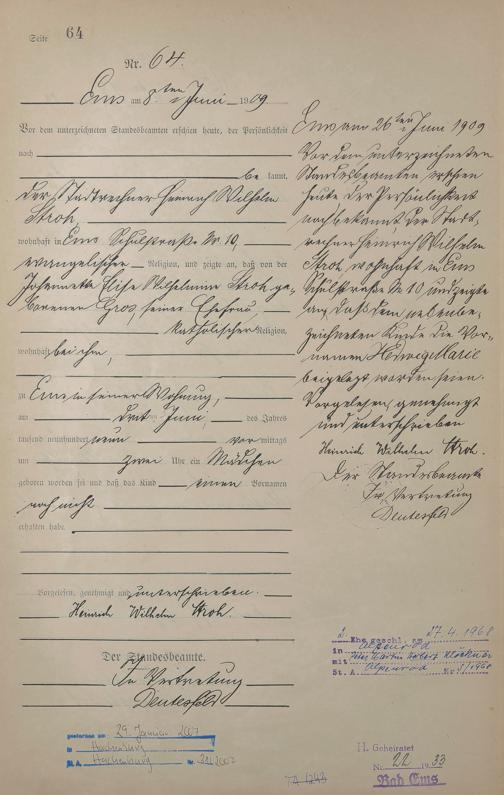 Seite 64
Nr. 64.
Ems am 8ten Juni 1909
Vor dem unterzeichneten Standesbeamten erschien heute, der Persönlichkeit
nach
be kannt,
der Stadtrechner Heinrich Wilhelm
Stroh
wohnhaft in Ems Schulstraße Nr. 10,
evangelischer Religion, und zeigte an, daß von der
Johannetta Elise Wilhelmine Stroh ge-
borenen Gros, seiner Ehefrau,
katholischer Religion,
wohnhaft bei ihm,
zu Ems in seiner Wohnung,
am Juni, des Jahres
tausend neunhundert neun vor mittags
um zwei Uhr ein Mädchen
geboren worden sei und daß das Kind einen Vornamen
noch nicht
erhalten habe.
Vorgelesen, genehmigt und unterschrieben.
Heinrich Wilhelm Stroh.
Der Standesbeamte.
In Vertretung
Deutesfeld
Ems am 26ten Juni 1909
Vor dem unterzeichneten
Standesbeamten erschien
heute der Persönlichkeit
nach bekannt der Stadt-
rechner Heinrich Wilhelm
Stroh, wohnhaft in Ems
Schulstraße Nr 10 und zeigte
an, daß dem nebenbe-
zeichneten Kinde die Vor-
namen Hedwig Marie
beigelegt worden seien.
Vorgelesen, genehmigt
und unterschrieben
Heinrich Wilhelm Stroh.
Der Standesbeamte
In Vertretung
Deutesfeld
2. Ehe geschl. am 27.4.1968
in Alpenrod
mit Martin
St. A. Alpenrod Nr.
gestorben am 29. Januar 2007
in Hachenburg
St.A. Hachenburg Nr.
H. Geheiratet
Nr. 22 1933
Bad Ems